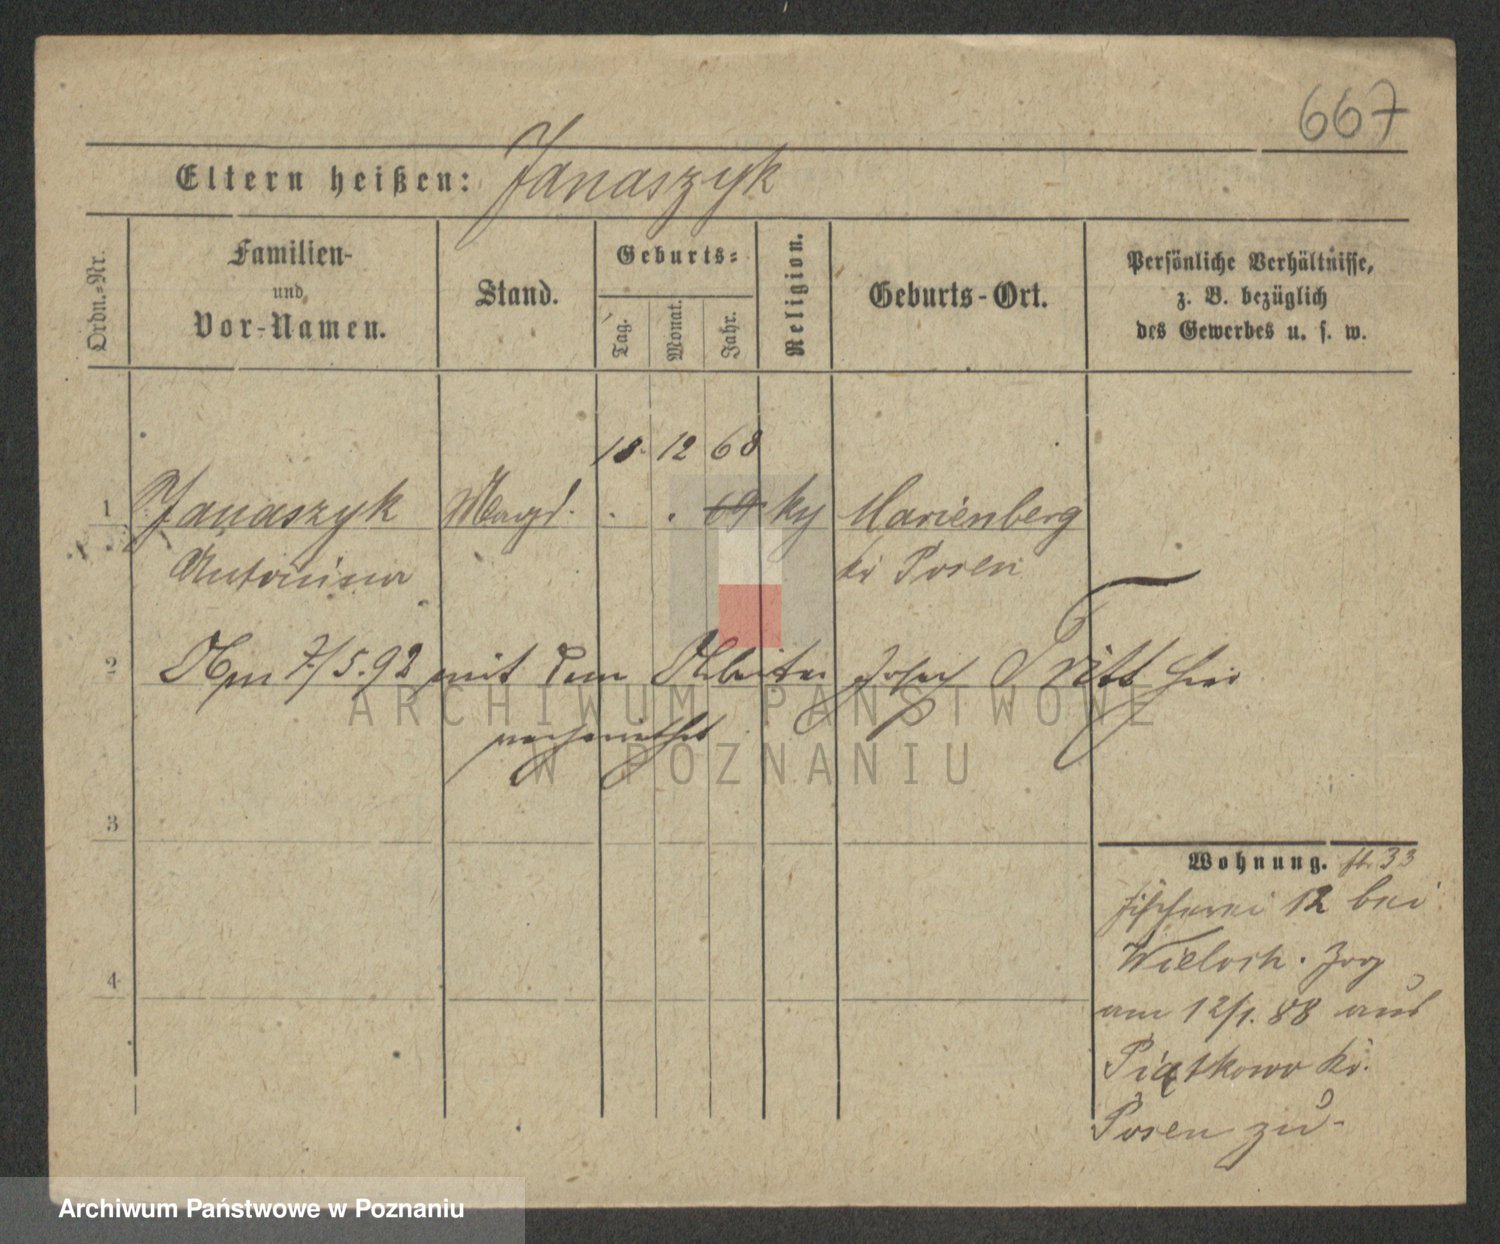 667
Eltern heißen: Janaszyk
Ordn.-Nr.
Familien-
und
Vor-Namen.
Stand.
Geburts-
Tag.
Monat.
Jahr.
Religion.
Geburts-Ort.
Persönliche Verhältnisse,
z. B. bezüglich
des Gewerbes u. s. w.
18 12 68
1 Janaszyk Magd. . . 69 kg Marienberg
Antonina Kr Posen
2 Am 7/5.92 mit dem Arbeiter Josef Tritt hier
verheirathet
ARCHIWUM PAŃSTWOWE
W POZNANIU
3
Wohnung. 33
Fischerei 12 bei
Wieloch. Zog
am 12/1.88 aus
Piątkowo Kr.
Posen zu-
4
Archiwum Państwowe w Poznaniu